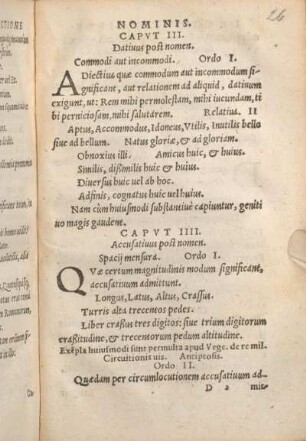 NOMINIS.
26
CAPVT III.
Datiuus post nomen.
Commodi aut incommodi. Ordo I.
ADiectiua quæ commodum aut incommodum si-
gnificant, aut relationem ad aliquid, datiuum
exigunt, ut: Rem mihi permolestam, mihi iucundam, ti
bi perniciosam, mihi salutarem. Relatiua. II
Aptus, Accommodus, Idoneus, Vtilis, Inutilis bello
siue ad bellum. Natus gloriæ, & ad gloriam.
Obnoxius illi. Amicus huic, & huius.
Similis, dissimilis huic & huius.
Diuersus huic uel ab hoc.
Adfinis, cognatus huic uel huius.
Nam cùm huiusmodi substantiuè capiuntur, geniti
uo magis gaudent.
CAPVT IIII.
Accusatiuus post nomen.
Spacij mensura. Ordo I.
QVæ certum magnitudinis modum significant,
accusatiuum admittunt.
Longus, Latus, Altus, Crassus.
Turris alta trecentos pedes.
Liber crassus tres digitos: siue trium digitorum
crassitudine, & trecentorum pedum altitudine.
Exẽpla huiusmodi sunt permulta apud Vege. de re mil.
Circuitionis uis. Antiptosis.
Ordo II.
Quædam per circumlocutionem accusatiuum ad-
D 2 mit-